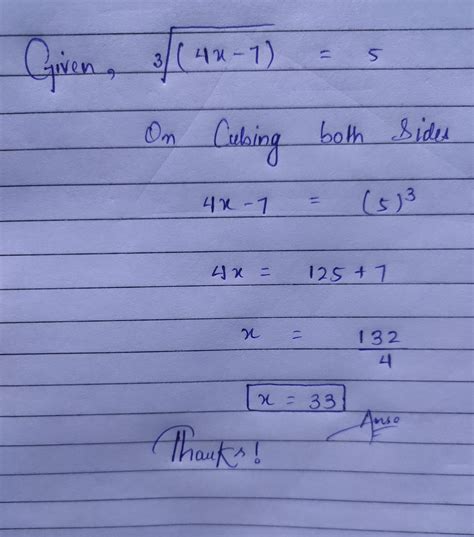 Given, ∛(4x-7) = 5
On Cubing both Sides
4x-7 = (5)³
4x = 125 + 7
x = 132/4
x = 33
Thanks!